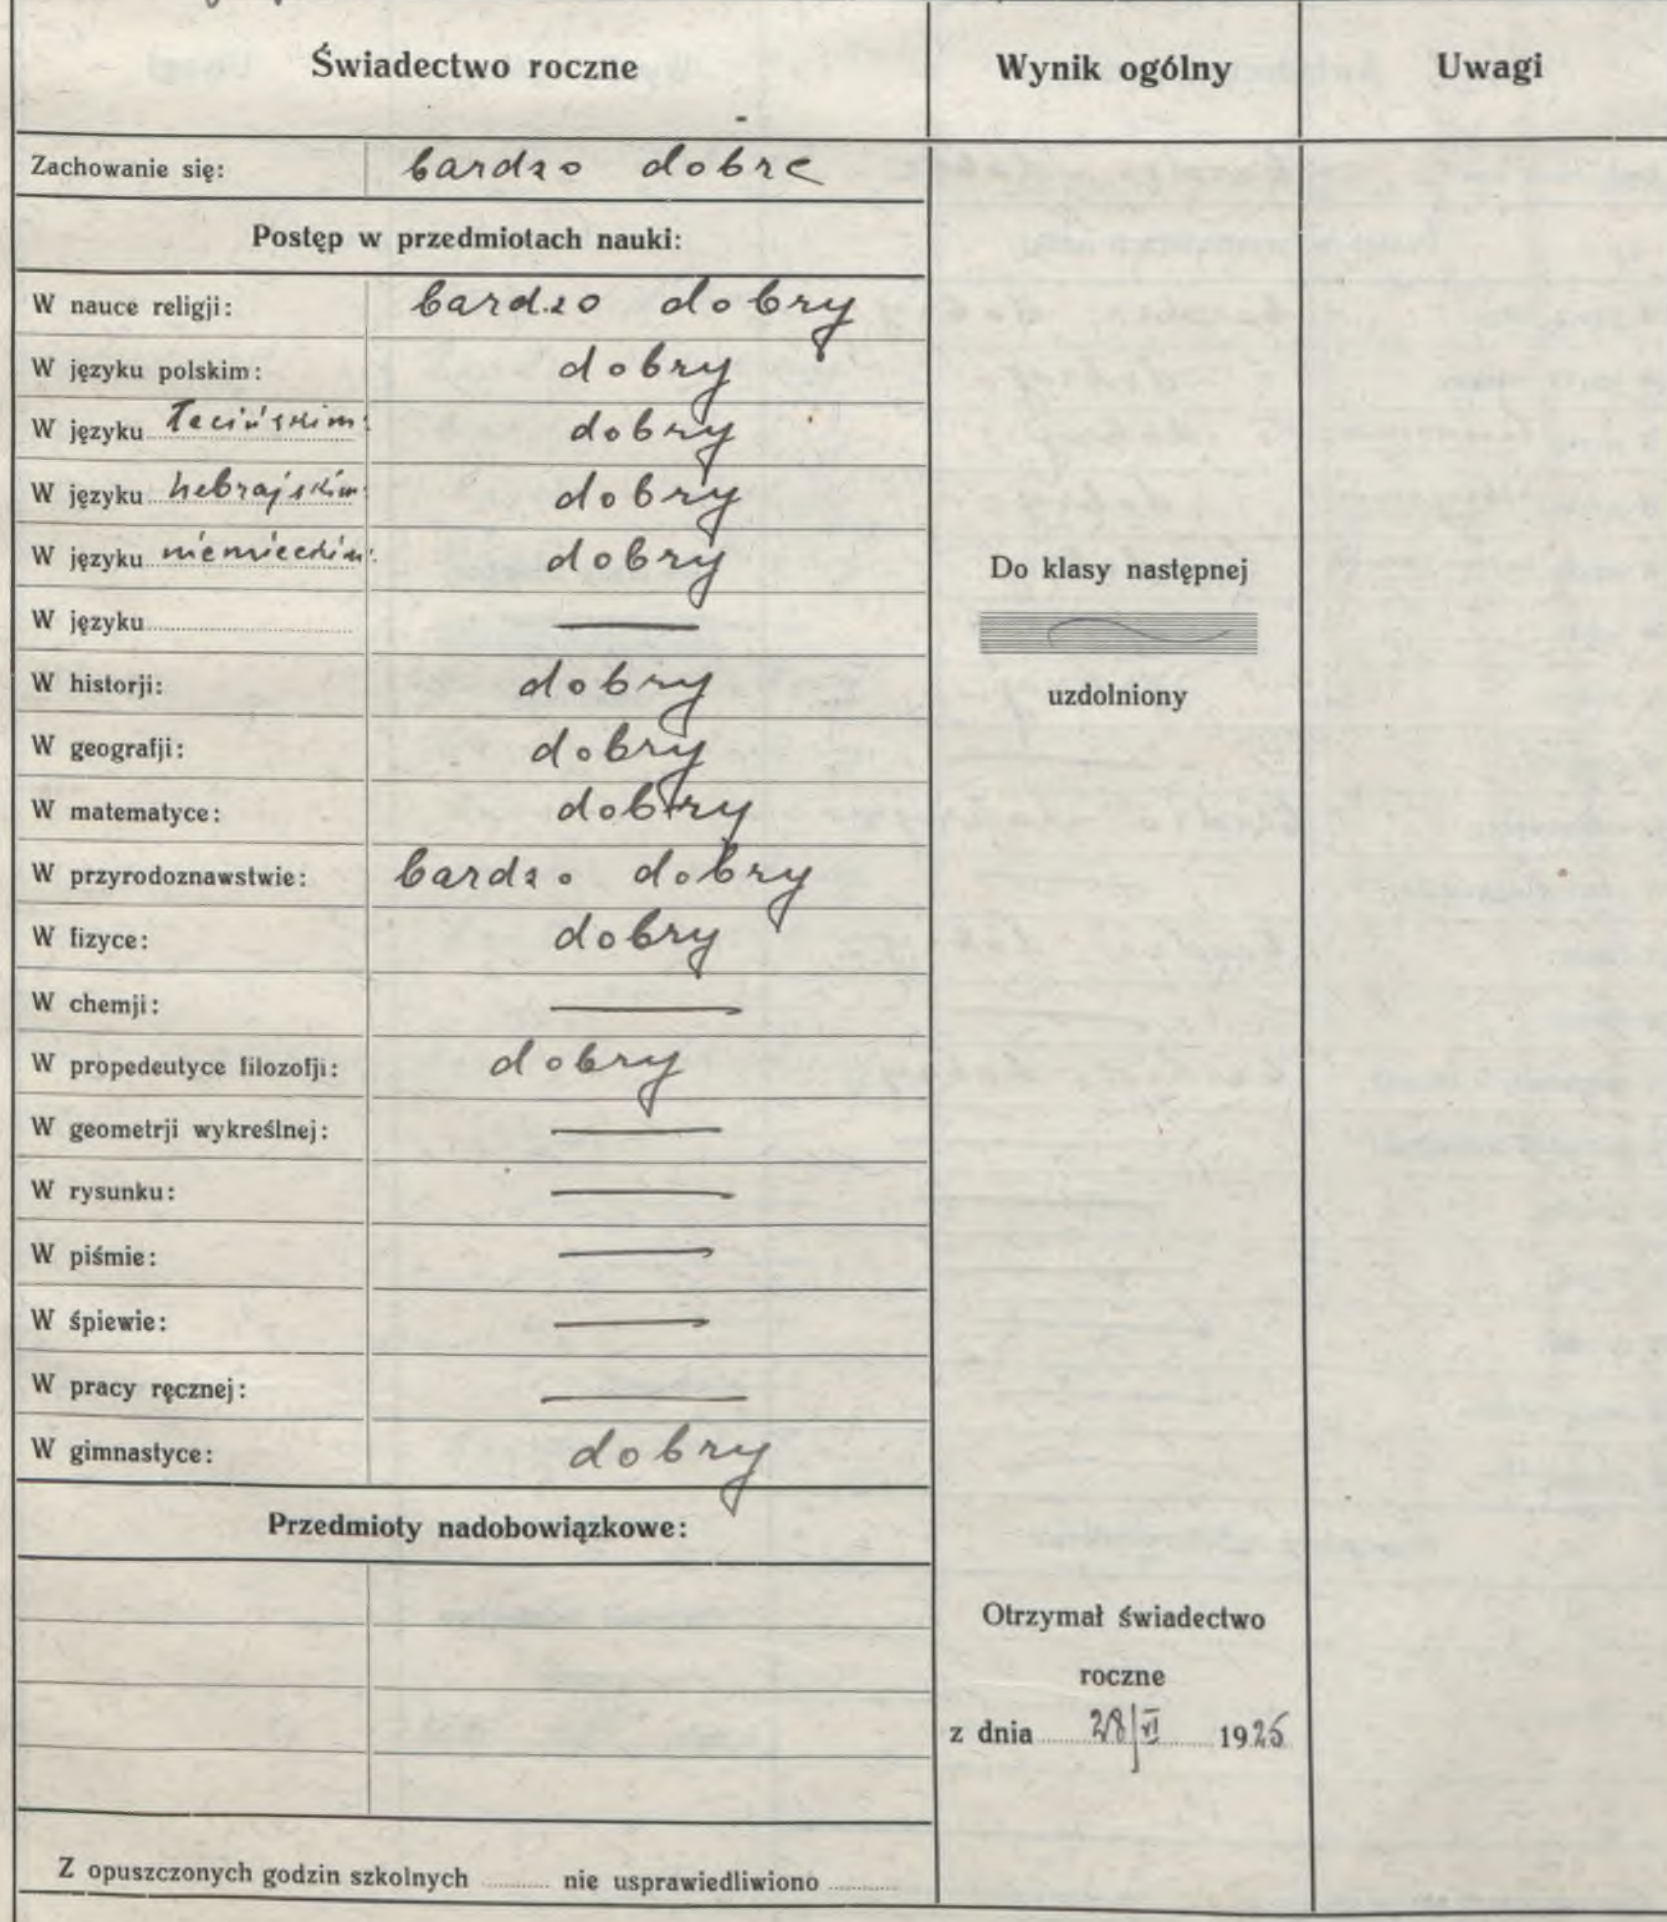 Świadectwo roczne Wynik ogólny Uwagi
Zachowanie się: bardzo dobre
Postęp w przedmiotach nauki:
W nauce religji: bardzo dobry
W języku polskim: dobry
W języku łacińskim: dobry
W języku hebrajskim: dobry
W języku niemieckim: dobry
Do klasy następnej
W języku —
W historji: dobry
uzdolniony
W geografji: dobry
W matematyce: dobry
W przyrodoznawstwie: bardzo dobry
W fizyce: dobry
W chemji: —
W propedeutyce filozofji: dobry
W geometrji wykreślnej: —
W rysunku: —
W piśmie: —
W śpiewie: —
W pracy ręcznej: —
W gimnastyce: dobry
Przedmioty nadobowiązkowe:
Otrzymał świadectwo
roczne
z dnia 28/VI 1926
Z opuszczonych godzin szkolnych ........ nie usprawiedliwiono ........